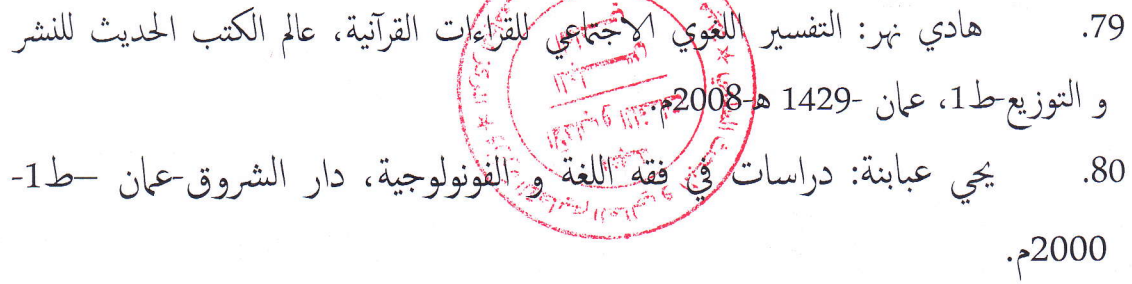 79. هادي نهر: التفسير اللغوي الاجتماعي للقراءات القرآنية، عالم الكتب الحديث للنشر
و التوزيع-ط1، عمان -1429 هـ-2008م.
80. يحي عبابنة: دراسات في فقه اللغة و الفونولوجية، دار الشروق-عمان –ط1-
2000م.